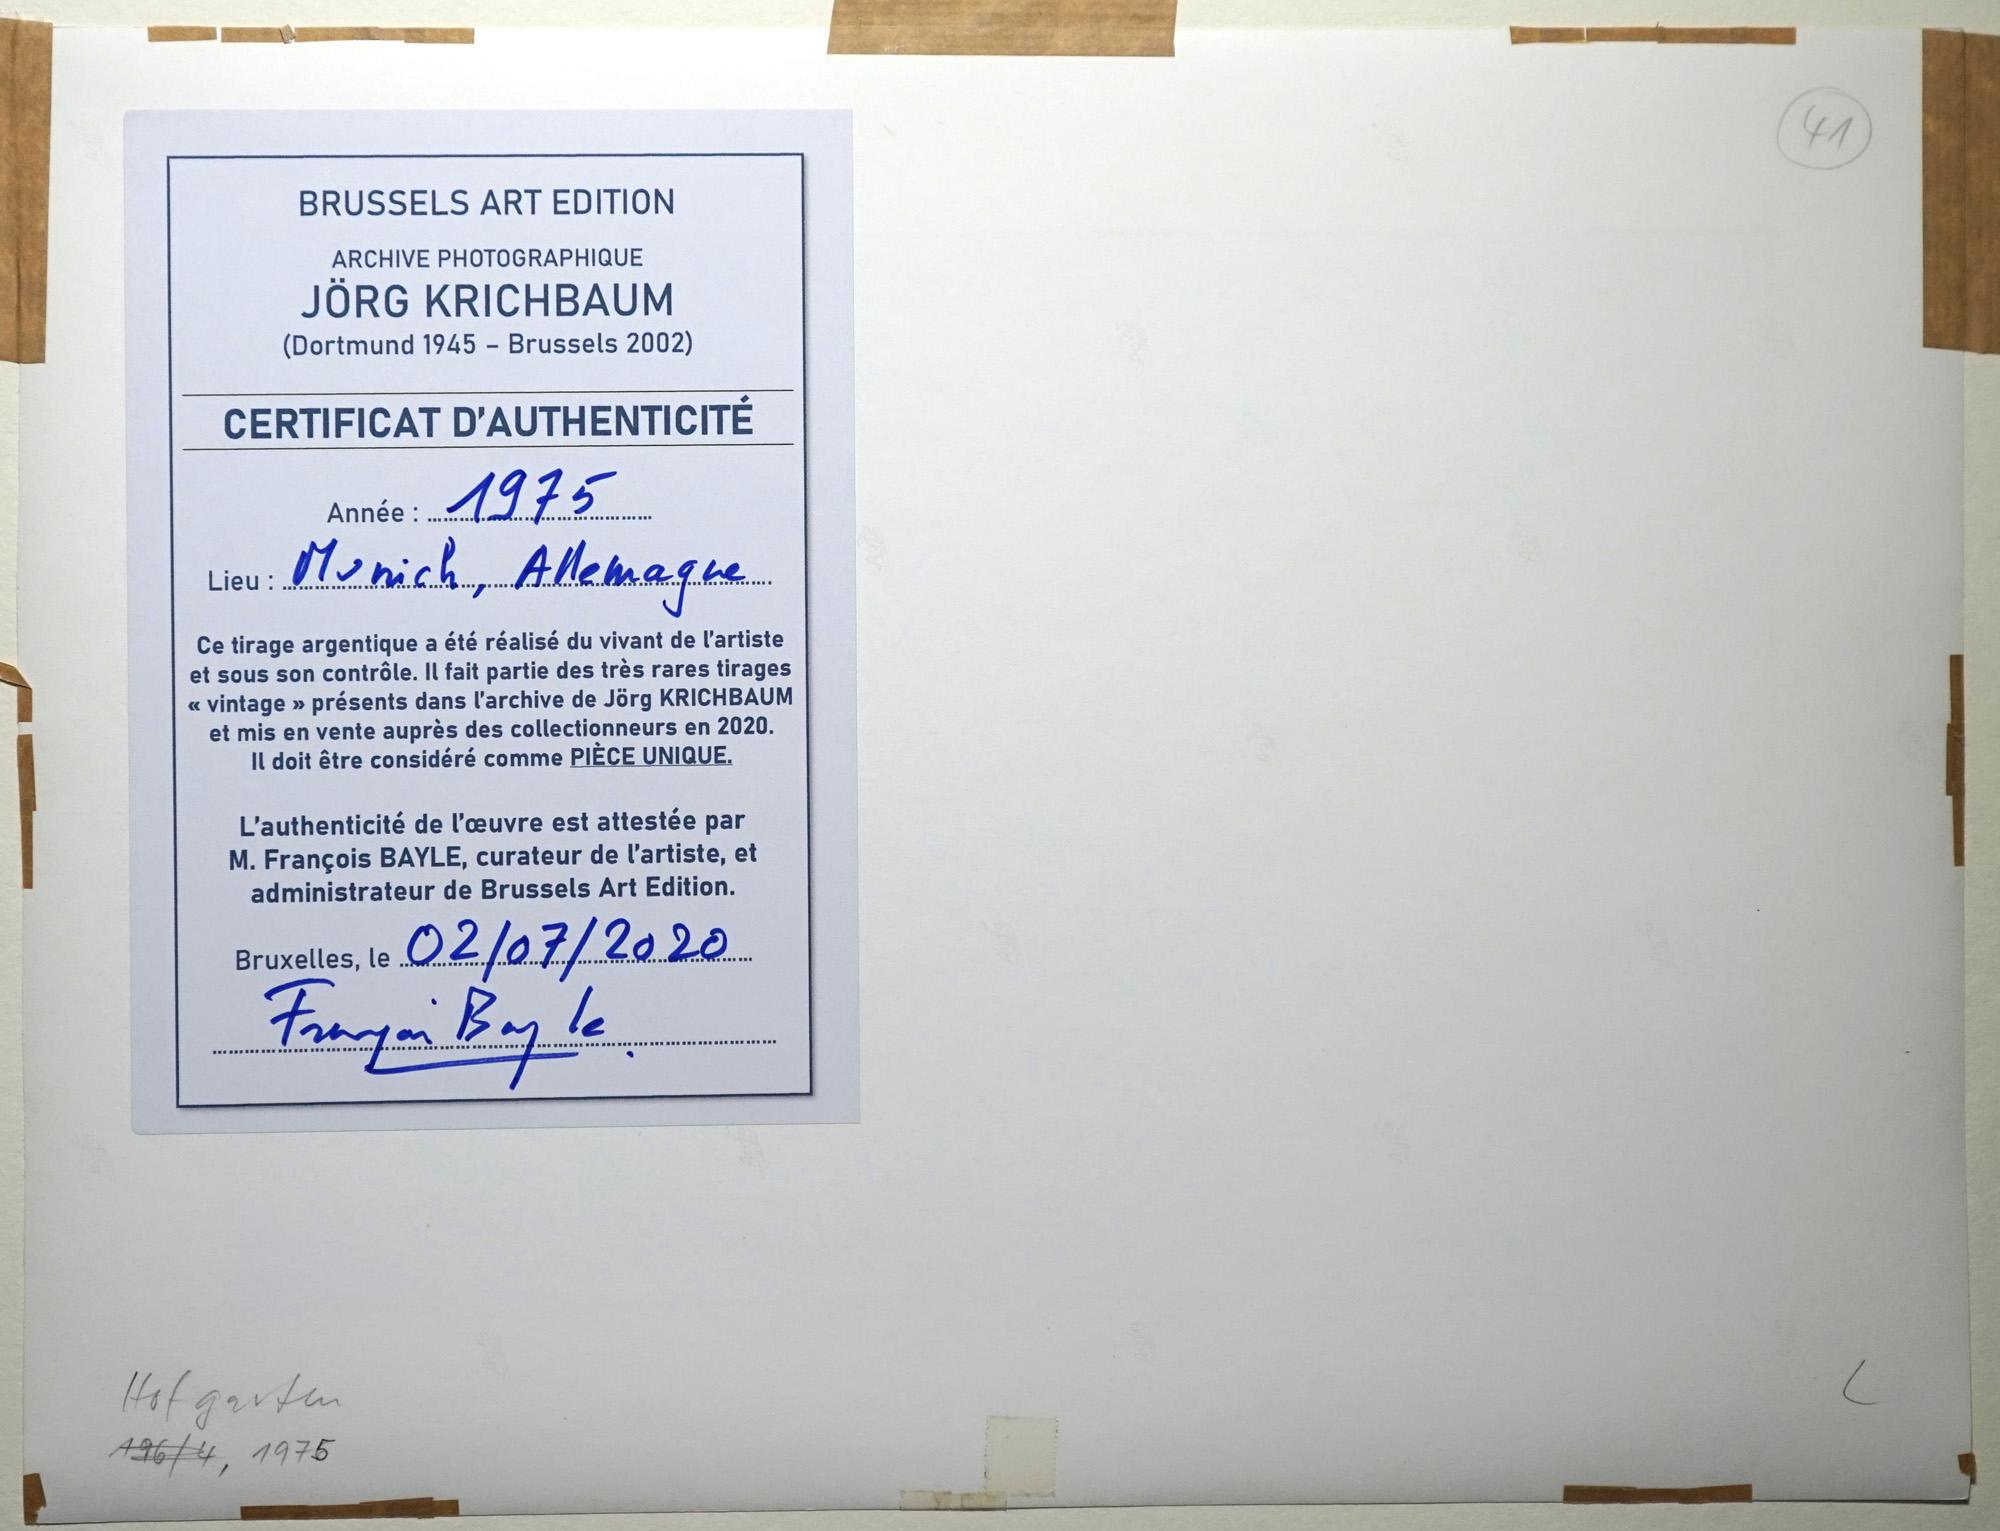 BRUSSELS ART EDITION
ARCHIVE PHOTOGRAPHIQUE
JÖRG KRICHBAUM
(Dortmund 1945 – Brussels 2002)
CERTIFICAT D'AUTHENTICITÉ
Année : 1975
Lieu : Munich, Allemagne
Ce tirage argentique a été réalisé du vivant de l'artiste
et sous son contrôle. Il fait partie des très rares tirages
« vintage » présents dans l'archive de Jörg KRICHBAUM
et mis en vente auprès des collectionneurs en 2020.
Il doit être considéré comme PIÈCE UNIQUE.
L'authenticité de l'œuvre est attestée par
M. François BAYLE, curateur de l'artiste, et
administrateur de Brussels Art Edition.
Bruxelles, le 02/07/2020
François Bayle.
41
Hofgarten
196/4, 1975